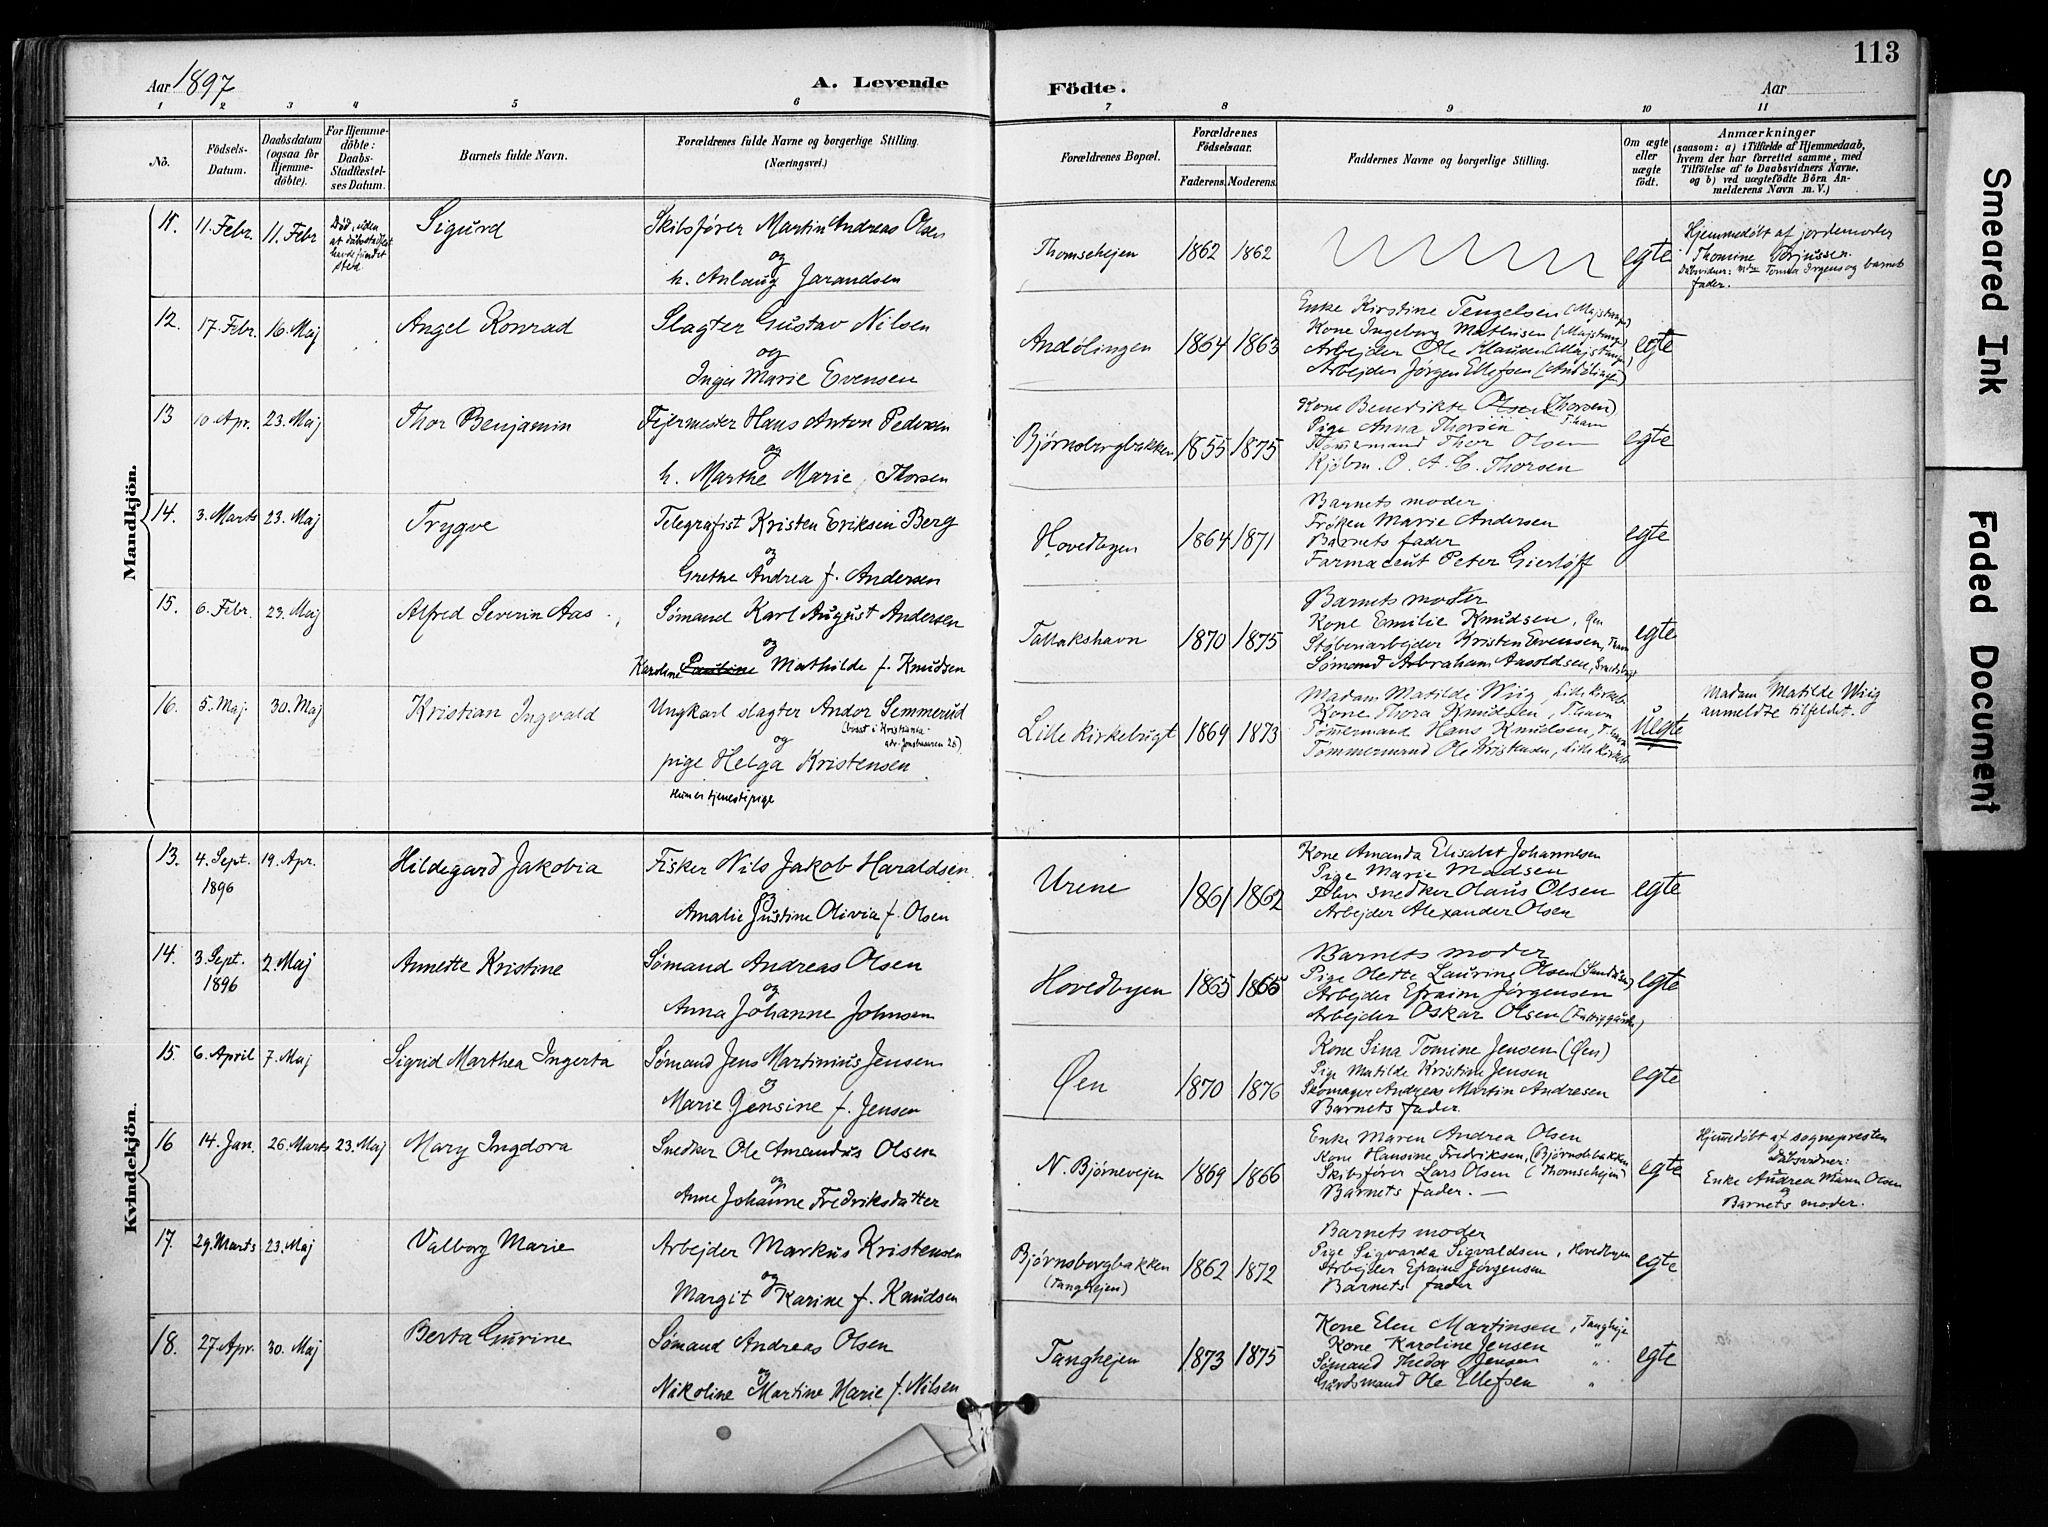 113
Aar 1897
A. Levende
Födte.
Aar
1 2 3 4 5 6 7 8 9 10 11
No.
Födsels-Datum.
Daabsdatum (ogsaa for Hjemme-döbte).
For Hjemme-döbte: Daabs-Stadfæstel-ses Datum.
Barnets fulde Navn.
Forældrenes fulde Navne og borgerlige Stilling.
(Næringsvei.)
Forældrenes Bopæl.
Forældrenes Födselsaar.
Faderens. Moderens.
Faddernes Navne og borgerlige Stilling.
Om ægte eller uægte födt.
Anmærkninger
(saasom: a) i Tilfælde af Hjemmedaab, hvem der har forrettet samme, med Tilföielse af to Daabsvidners Navne, og b) ved uægtefödte Börn An-melderens Navn m. V.)
Mandkjön.
11. 11. Febr. 11. Febr Død, uden at dåbsstadfest havde fundet sted Sigurd Skibsfører Martin Andreas Olsen
og
h. Anlaug Jarandsen
Thomsehejen 1862 1862 egte
Hjemmedøbt af jordemoder
Thomine Terjussen.
fader.
12. 17. Febr. 16. Maj Angel Konrad Slagter Gustav Nilsen
og
Inga Marie Evensen
Andölingen 1864 1863 egte
Enke Kirstine Tengelsen
Kone Ingeborg Mathisen
Arbejder Ole Klausen
Arbejder Jørgen Ellefsen (Andölingen)
13 10. Apr. 23. Maj Thor Benjamin Fejermester Hans Anton Pedersen
og
h. Marthe Marie Thorsen
Bjørnsbergbakken 1855 1875 egte
Kone Benedikte Olsen (Thorsen)
Pige Anna Thorsen
Tömmermand Thor Olsen
Kjøbm. O. A. C. Thorsen
14. 3. Marts 23. Maj Trygve Telegrafist Kristen Eriksen Berg
og
Grethe Andrea f. Andersen
Hovedbyen 1864 1871 egte
Barnets moder
Frøken Marie Andersen
Barnets fader
Farmaceut Peter Gierløff
15. 6. Febr. 23. Maj Alfred Severin Aas Sømand Karl August Andersen
og
Karoline Pauline Mathilde f. Knudsen
Tallakshavn 1870 1875 egte
Barnets moder
Kone Emilie Knudsen, Øen
Støberiarbejder Kristen Evensen,
Sømand Abraham Aasoldsen,
16. 5. Maj. 30. Maj Kristian Ingvald Ungkarl slagter Andor Semmerud
(bosat i Kristiania
og
pige Helga Kristensen
Hun er tjenestepige
Lille Kirkebugt 1869 1873 uegte
Madam Matilde Wiig, Lille Kirkeb.
Kone Thora Knudsen, T.havn
Tømmermand Hans Knudsen, T.havn
Tømmermand Ole Kristensen, Lille Kirkeb.
Madam Matilde Wiig
anmeldte tilfeldet.
Kvindekjön.
13. 4. Sept. 1896 19. Apr. Hildegard Jakobia Fisker Nils Jakob Haraldsen
og
Amalie Justine Olivia f. Olsen
Urene 1861 1862 egte
Kone Amanda Elisabet Johannesen
Pige Marie Madsen
Elev snedker Olaus Olsen
Arbejder Alexander Olsen
14. 3. Sept. 1896 2. Maj Annette Kristine Sømand Andreas Olsen
og
Anna Johanne Johnsen
Hovedbyen 1865 1865 egte
Barnets moder
Pige Olette Laurine Olsen
Arbejder Efraim Jørgensen
Arbejder Oskar Olsen
15. 6. April 7. Maj Sigrid Marthea Ingerta Sømand Jens Martinius Jensen
og
Marie Jensine f. Jensen
Øen 1870 1876 egte
Kone Sina Tomine Jensen (Øen)
Pige Matilde Kristine Jensen
Skomager Andreas Martin Andresen
Barnets fader.
16 14. Jan. 26. Marts 23. Maj Mary Ingdora Snedker Ole Amandus Olsen
og
Anne Johanne Fredriksdatter
N. Bjørnevejen 1869 1866 egte
Enke Maren Andrea Olsen
Kone Hansine Fredriksen, (Bjørnsbbakken
Skibsfører Lars Olsen (Thomsehejen)
Barnets fader. —
Hjemmedøbt af sognepresten
Dåbsvidner:
Enke Andrea Maren Olsen
og
Barnets moder.
17. 29. Marts 23. Maj Valborg Marie Arbejder Markus Kristensen
og
Margit Karine f. Knudsen
Bjørnsborgbakken
(Tanghejen)
1862 1872 egte
Barnets moder
Pige Sigvarda Sigvaldsen, Hovedbyen
Arbejder Efraim Jørgensen
Barnets fader
18. 27. Apr. 30. Maj Berta Gurine Sømand Andreas Olsen
og
Nikoline Martine Marie f. Nilsen
Tanghejen 1873 1875 egte
Kone Elen Martinsen, Tangheje
Kone Karoline Jensen "
Sømand Thedor Jensen "
Gårdsmand Ole Ellefsen "
Smeared Ink
Faded Document